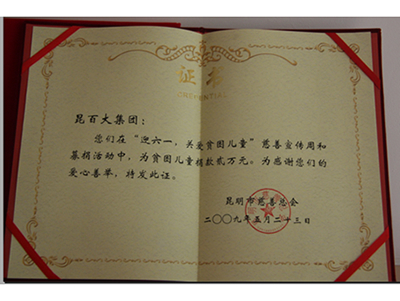 证书
CREDENTIAL
昆百大集团：
您们在“迎六一，关爱贫困儿童”慈善宣传周和
募捐活动中，为贫困儿童捐款贰万元。为感谢您们的
爱心善举，特发此证。
昆明市慈善总会
二〇〇九年五月二十三日